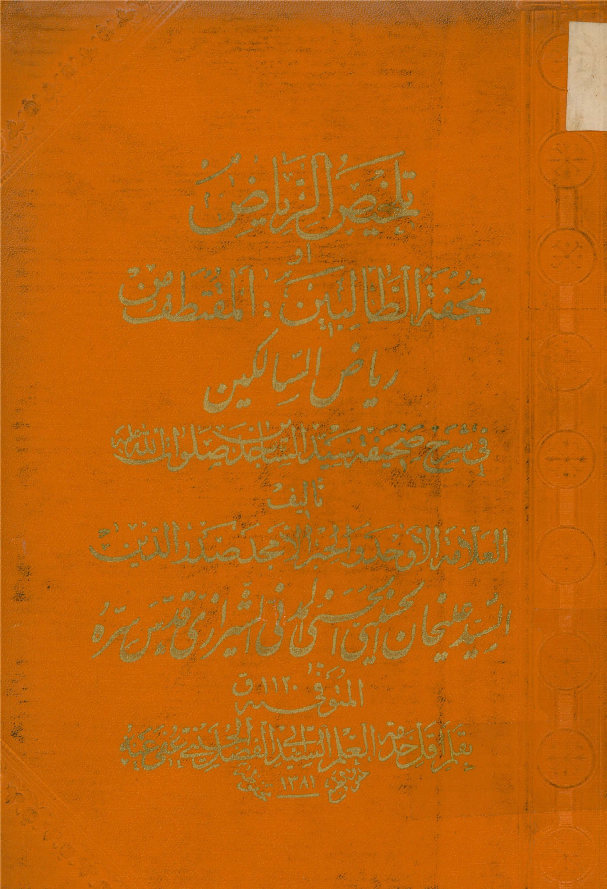 تلخيص الرياض
أو
تحفة الطالبين : المقتطف من
رياض السالكين
في شرح صحيفة سيد الساجدين صلوات الله عليه
تأليف
العلامة الأوحد والحبر الأمجد صدر الدين
السيد عليخان الحسيني الحسني المدني الشيرازي قدس سره
المتوفى سنة ١١٢٠ ق
بقلم أقل خدمة العلم السيد أبو الفضل الحسيني عفي عنه
١٣٨١